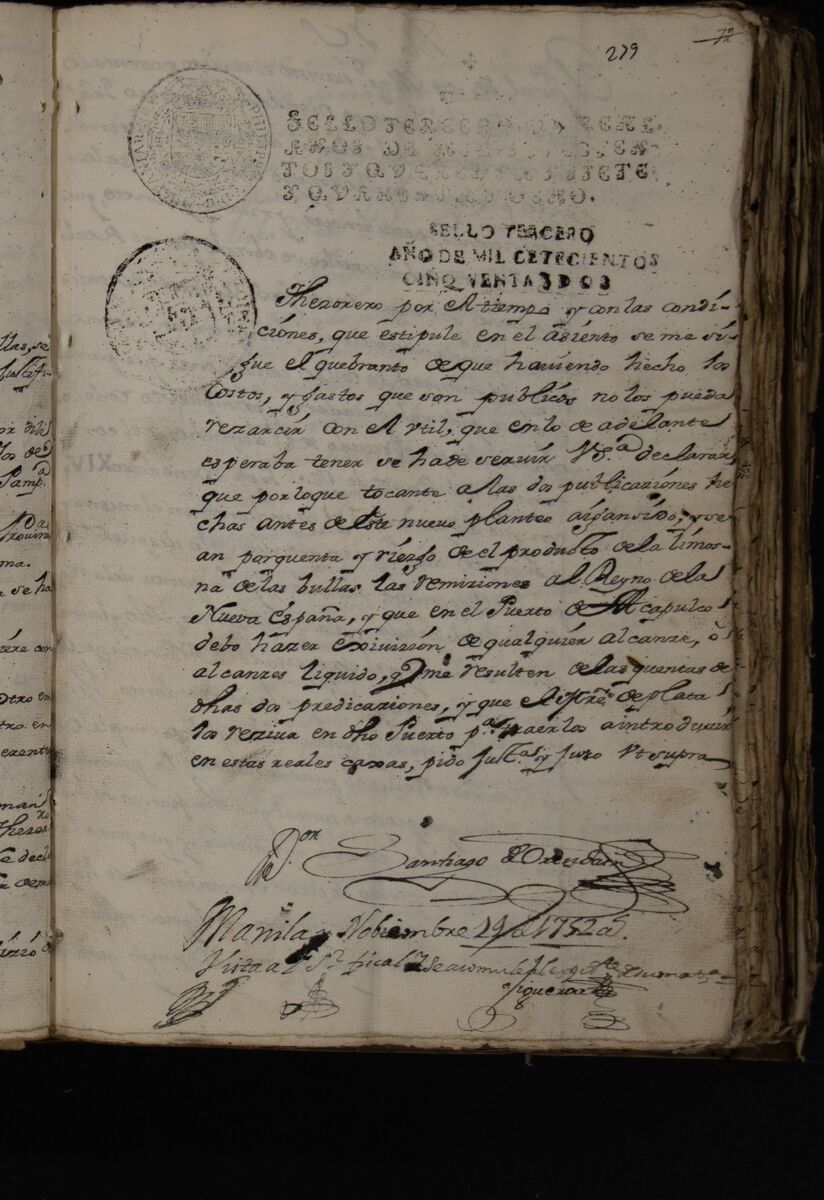 279 72
SELLO TERCERO UN REAL
AÑOS DE MIL SETECIEN
TOS Y QVARENTA Y SIETE
Y QVARENTA Y OCHO.
SELLO TERCERO
AÑO DE MIL CETECIENTOS
CINQVENTA Y DOS
Thezorero por el tiempo y con las condi-
ciones, que estipule en el asiento se me si-
gue el quebranto de que haviendo hecho los
Costos, y gastos que son publicos no los pueda
rezarcir con el vtil, que en lo de adelante
esperaba tener se ha de servir VS.ª declarar
que por lo que tocante a las dos publicaziones he
chas antes de este nuevo planteo y se
an por quenta y riezgo de el producto de la limos-
na de las bullas las remiziones al Reyno de la
Nueva España, y que en el Puerto de Acapulco
debo hazer exivision de qualquier alcanze, ò
alcanzes liquido, q me resulten de las quentas de
dhas dos predicaziones, y que el de plata
los reziva en dho Puerto p.ª traerlos a introduzir
en estas reales caxas, pido Just.ª y juro Vt supra
D.on Santiago de Orendain
Manila y Nobiembre 29 de 1752 a.
Vista al S.r fiscal
Figueroa